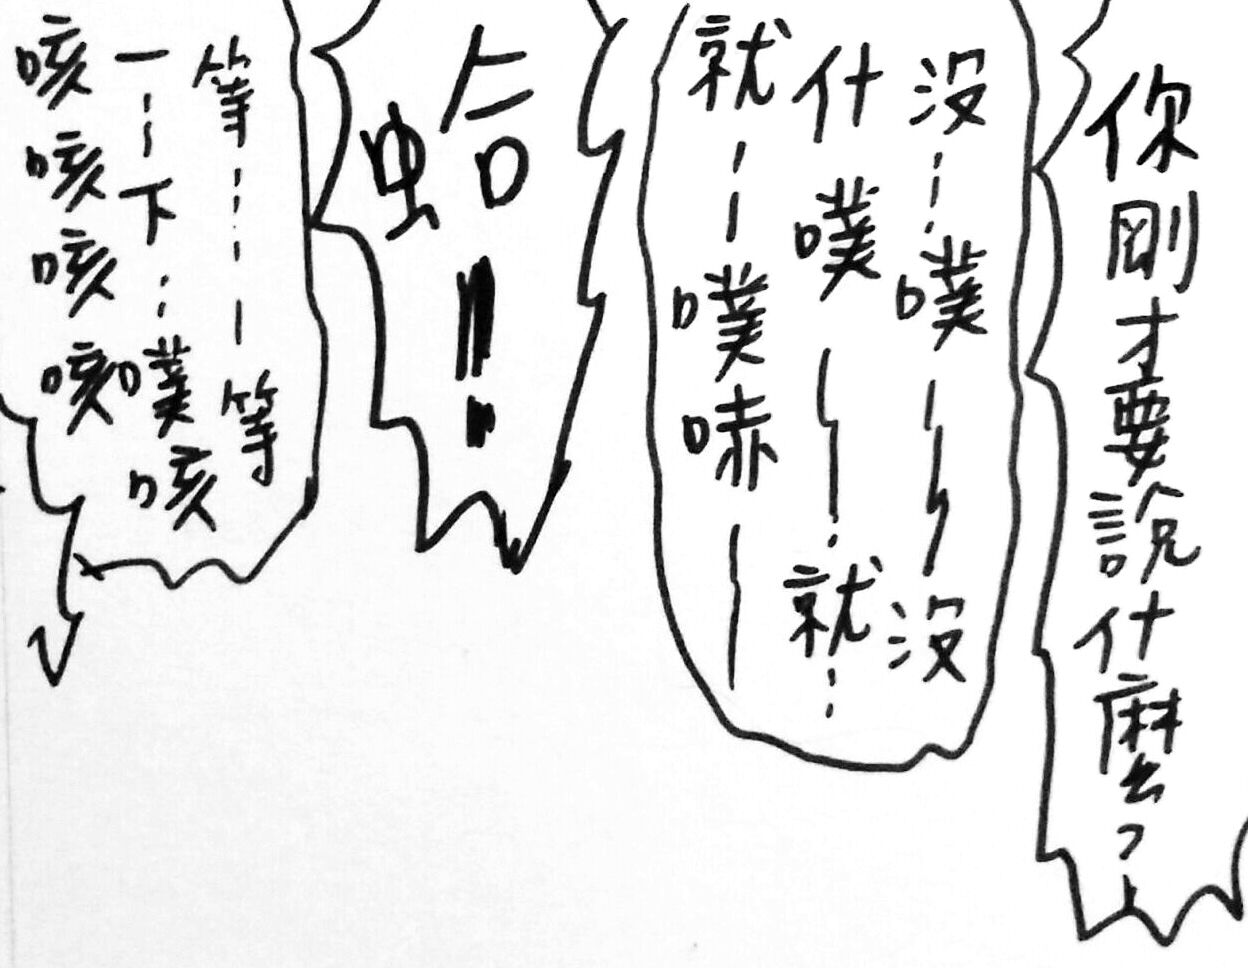 你剛才要說什麼?
沒……噗———沒
什噗———…就……
就……噗哧——
蛤!!
等………等
一……下……噗咳
咳咳咳咳